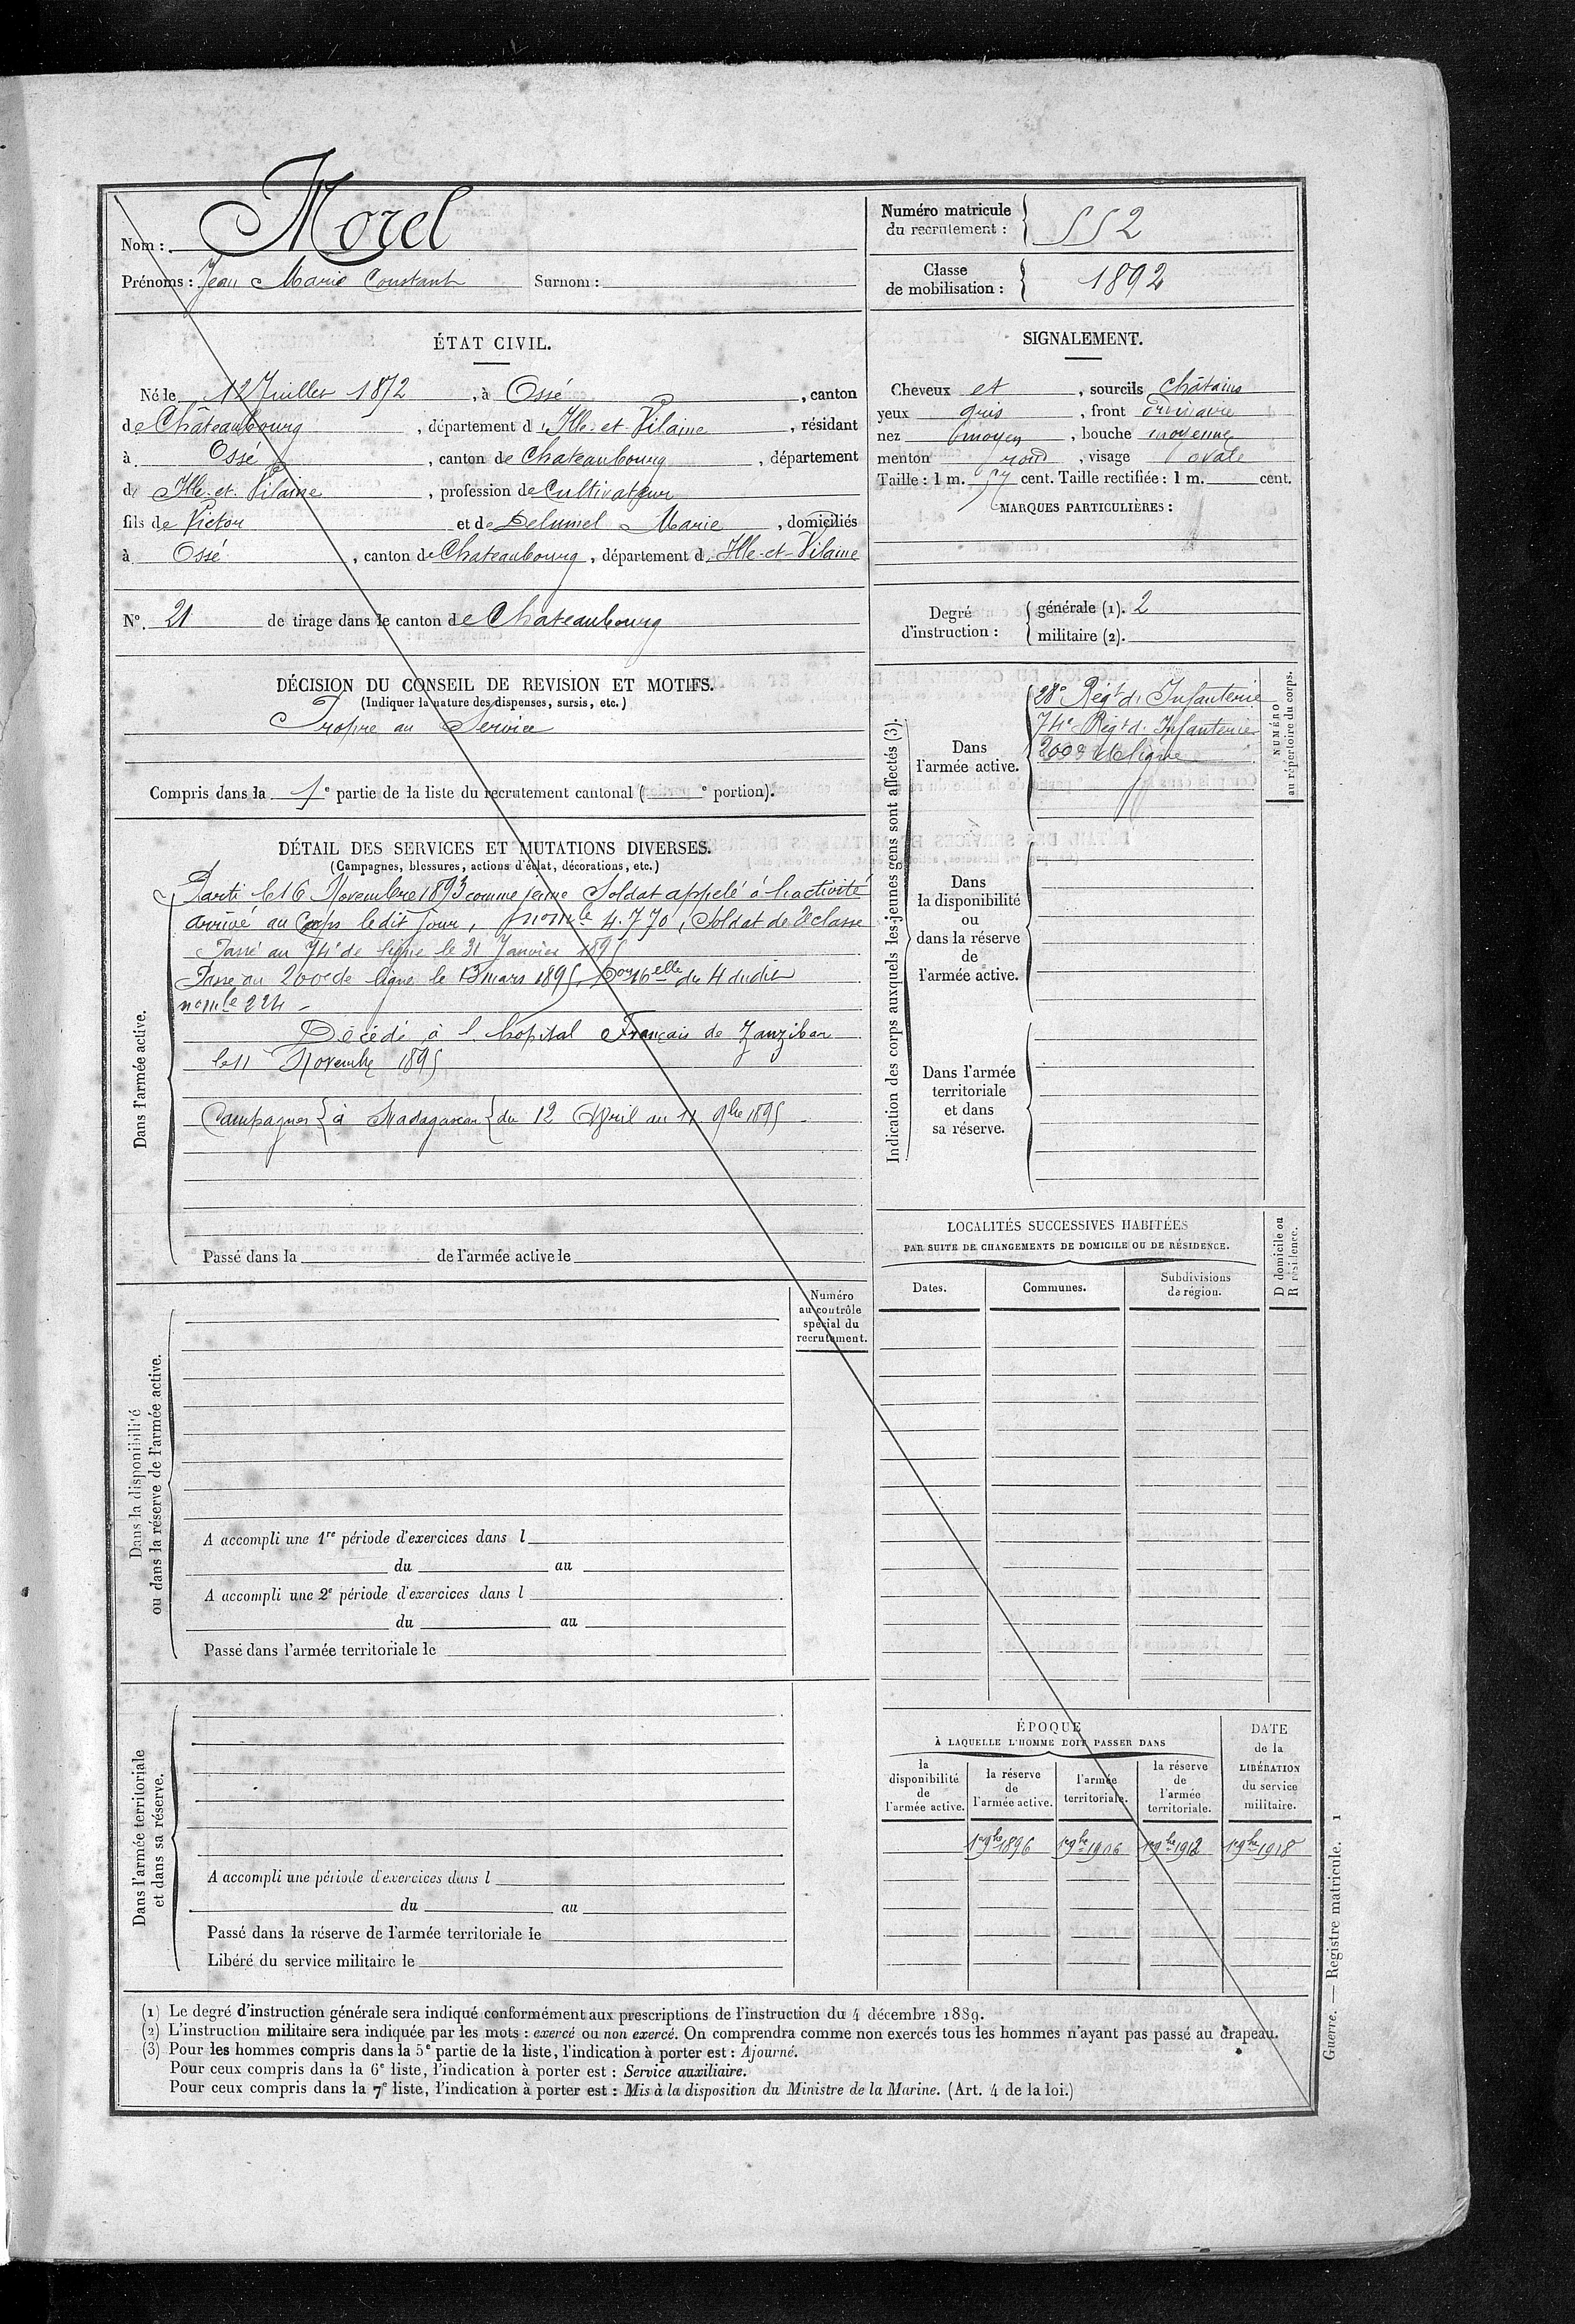 Nom : Morel
Prénoms : Jean Marie Constant Surnom :
Numéro matricule du recrutement : 552
Classe de mobilisation : 1892
ÉTAT CIVIL.
Né le 12 Juillet 1872, à Ossé, canton
de Châteaubourg, département d'Ille-et-Vilaine, résidant
à Ossé, canton de Chateaubourg, département
d'Ille-et-Vilaine, profession de Cultivateur
fils de Victor et de Delumel Marie, domiciliés
à Ossé, canton de Chateaubourg, département d'Ille-et-Vilaine
N°. 21 de tirage dans le canton de Chateaubourg
SIGNALEMENT.
Cheveux et, sourcils châtains
yeux gris, front ordinaire
nez moyen, bouche moyenne
menton rond, visage ovale
Taille : 1 m. 57 cent. Taille rectifiée : 1 m. cent.
MARQUES PARTICULIÈRES :
Degré d'instruction :
générale (1). 2
militaire (2).
DÉCISION DU CONSEIL DE REVISION ET MOTIFS.
(Indiquer la nature des dispenses, sursis, etc.)
Propre au Service
Compris dans la 1e partie de la liste du recrutement cantonal ( e portion).
DÉTAIL DES SERVICES ET MUTATIONS DIVERSES.
(Campagnes, blessures, actions d'éclat, décorations, etc.)
Dans l'armée active.
Parti le 16 Novembre 1893 comme jeune Soldat appelé à l'activité
arrivé au Corps ledit jour, 4.770, Soldat de 2e classe
Passé au 74e de ligne le 31 Janvier 1895
Passé au 200e de ligne le 13 mars 1895 du 4 dudit
224
Décédé à l'hôpital Français de Zanzibar
le 11 Novembre 1895
Campagnes { à Madagascar { du 12 Avril au 11 9bre 1895
Passé dans la de l'armée active le
Indication des corps auxquels les jeunes gens sont affectés (3).
NUMÉRO
au répertoire du corps.
Dans
l'armée active.
28e Régt d'Infanterie
74e Régt d'Infanterie
200e de ligne
Dans
la disponibilité
ou
dans la réserve
de
l'armée active.
Dans l'armée
territoriale
et dans
sa réserve.
LOCALITÉS SUCCESSIVES HABITÉES
PAR SUITE DE CHANGEMENTS DE DOMICILE OU DE RÉSIDENCE.
Dates.
Communes.
Subdivisions
de région.
D domicile ou
R résidence.
Dans la disponibilité
ou dans la réserve de l'armée active.
Numéro
au contrôle
spécial du
recrutement.
A accompli une 1re période d'exercices dans l
du au
A accompli une 2e période d'exercices dans l
du au
Passé dans l'armée territoriale le
Dans l'armée territoriale
et dans sa réserve.
A accompli une période d'exercices dans l
du au
Passé dans la réserve de l'armée territoriale le
Libéré du service militaire le
ÉPOQUE
À LAQUELLE L'HOMME DOIT PASSER DANS
la
disponibilité
de
l'armée active.
la réserve
de
l'armée active.
l'armée
territoriale.
la réserve
de
l'armée
territoriale.
DATE
de la
LIBÉRATION
du service
militaire.
1er 9bre 1896 1er 9bre 1906 1er 9bre 1912 1er 9bre 1918
(1) Le degré d'instruction générale sera indiqué conformément aux prescriptions de l'instruction du 4 décembre 1889.
(2) L'instruction militaire sera indiquée par les mots : exercé ou non exercé. On comprendra comme non exercés tous les hommes n'ayant pas passé au drapeau.
(3) Pour les hommes compris dans la 5e partie de la liste, l'indication à porter est : Ajourné.
Pour ceux compris dans la 6e liste, l'indication à porter est : Service auxiliaire.
Pour ceux compris dans la 7e liste, l'indication à porter est : Mis à la disposition du Ministre de la Marine. (Art. 4 de la loi.)
Guerre. — Registre matricule. 1